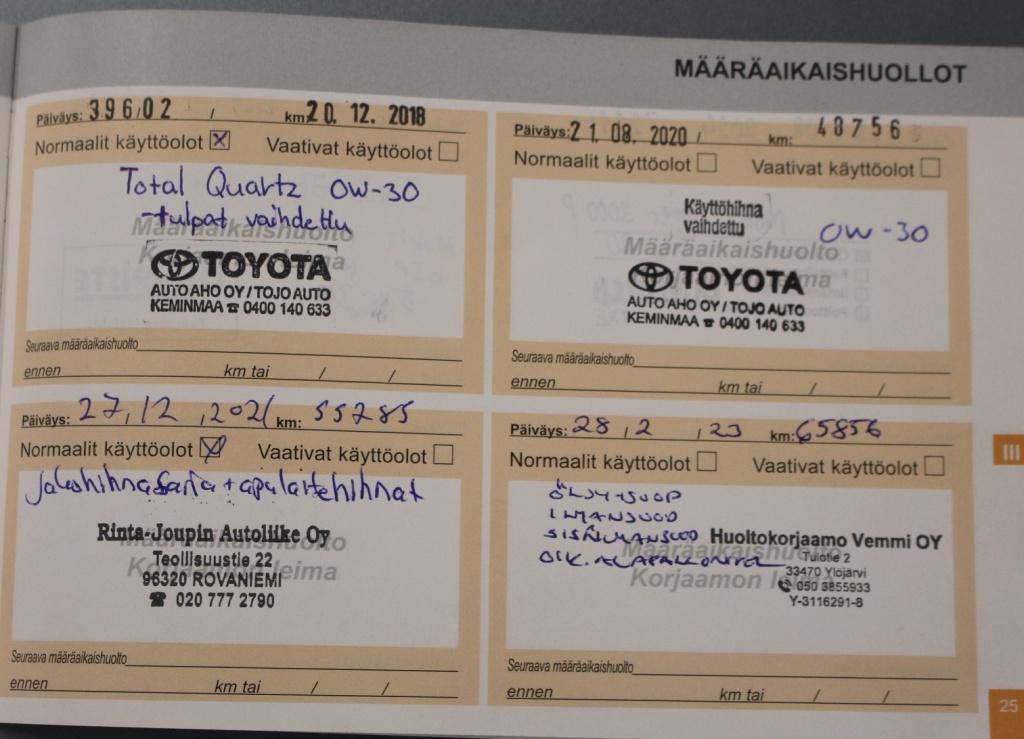 MÄÄRÄAIKAISHUOLLOT
Päiväys: 39602 / km: 20. 12. 2018
Normaalit käyttöolot ☒ Vaativat käyttöolot ☐
Total Quartz OW-30
-tulpat vaihdettu
Määräaikaishuolto
TOYOTA
AUTO AHO OY / TOJO AUTO
KEMINMAA ☎ 0400 140 633
Seuraava määräaikaishuolto
ennen km tai / /
Päiväys: 21. 08. 2020 / km: 48756
Normaalit käyttöolot ☐ Vaativat käyttöolot ☐
Käyttöhihna
vaihdettu
OW-30
Määräaikaishuolto
TOYOTA
AUTO AHO OY / TOJO AUTO
KEMINMAA ☎ 0400 140 633
Seuraava määräaikaishuolto
ennen km tai / /
Päiväys: 27, 12, 2021 km: 55285
Normaalit käyttöolot ☒ Vaativat käyttöolot ☐
Jakohihnasarja + apulaitehihnat
Rinta-Joupin Autoliike Oy
Teollisuustie 22
96320 ROVANIEMI
☎ 020 777 2790
Korjaamon leima
Seuraava määräaikaishuolto
ennen km tai / /
Päiväys: 28 / 2 / 23 km: 65856
Normaalit käyttöolot ☐ Vaativat käyttöolot ☐
ÖLJY+SUOD
ILMANSUOD
SISÄILMANSUOD
OIK. ALAPALLONIVEL
Huoltokorjaamo Vemmi OY
Tulotie 2
33470 Ylöjärvi
050 3855933
Y-3116291-8
Määräaikaishuolto
Korjaamon leima
Seuraava määräaikaishuolto
ennen km tai / /
III
25